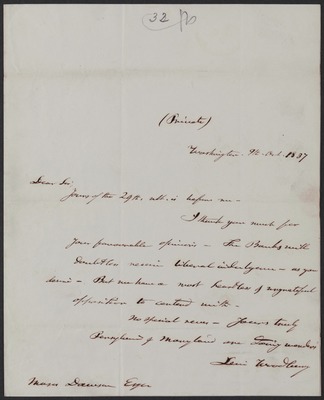 32
(Private)
Washington. 9th Oct. 1837
Dear Sir,
Yours of the 29th. ult. is before me -
I thank you much for
your favourable opinions - The Banks will
doubtless receive liberal indulgence - as you
desire - But we have a most heartless & ungrateful
opposition to contend with -
No special news - Yours truly
Pennsylvania & Maryland are doing wonders
Levi Woodbury
Moses Dawson Esqr